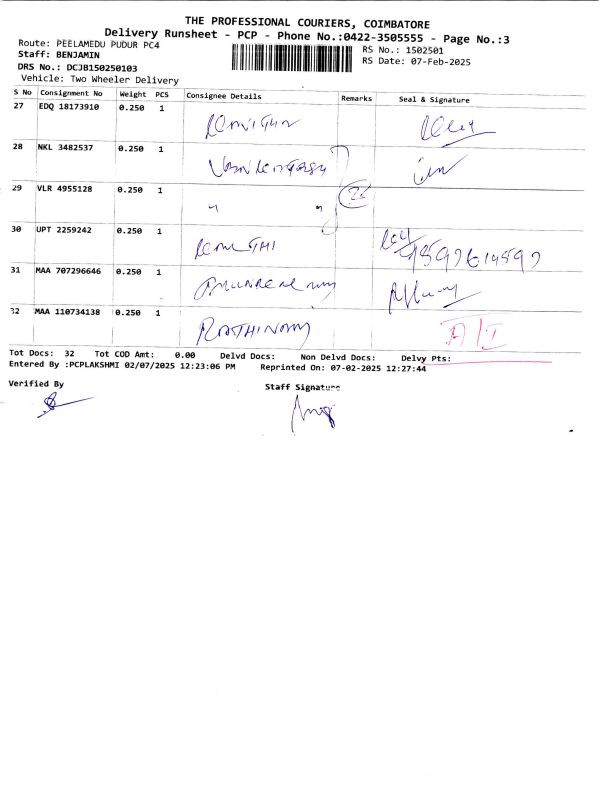 THE PROFESSIONAL COURIERS, COIMBATORE
Delivery Runsheet - PCP - Phone No.:0422-3505555 - Page No.:3
Route: PEELAMEDU PUDUR PC4
RS No.: 1502501
Staff: BENJAMIN
RS Date: 07-Feb-2025
DRS No.: DCJB150250103
Vehicle: Two Wheeler Delivery
S No Consignment No Weight PCS Consignee Details Remarks Seal & Signature
27 EDQ 18173910 0.250 1
28 NKL 3482537 0.250 1
29 VLR 4955128 0.250 1 " "
30 UPT 2259242 0.250 1
31 MAA 707296646 0.250 1
32 MAA 110734138 0.250 1 RATHINAM
Tot Docs: 32 Tot COD Amt: 0.00 Delvd Docs: Non Delvd Docs: Delvy Pts:
Entered By :PCPLAKSHMI 02/07/2025 12:23:06 PM Reprinted On: 07-02-2025 12:27:44
Verified By
Staff Signature